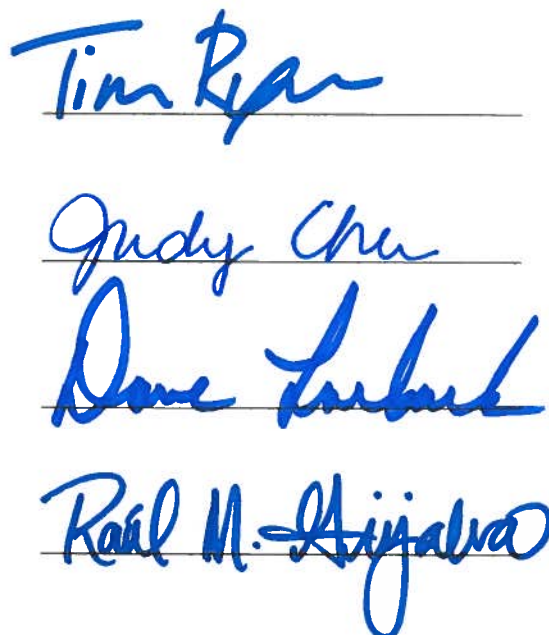 Tim Ryan
Judy Chu
Dave Loebsack
Raúl M. Grijalva